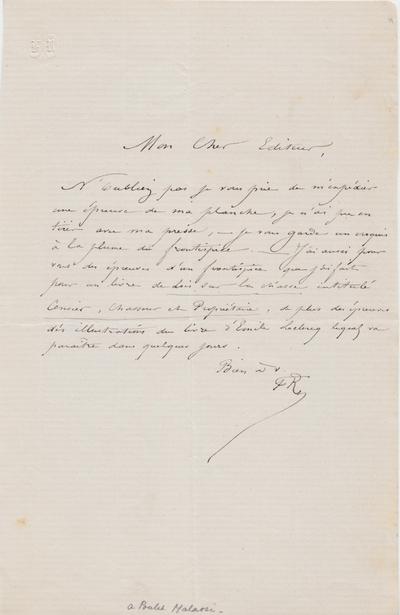 Mon Cher Editeur,
N'oubliez pas je vous prie de m'expédier
une épreuve de ma planche, je n'ai pu en
tirer avec ma presse, — je vous garde un croquis
à la plume du frontispice. — J'ai aussi pour
vous des épreuves d'un frontispice que j'ai fait
pour un livre de droit sur la chasse intitulé
Censier, Chasseur et Propriétaire, de plus des épreuves
des illustrations du livre d'Emile Leclercq lequel va
paraître dans quelques jours.
Bien à v
FR
a Poulet Malassis.